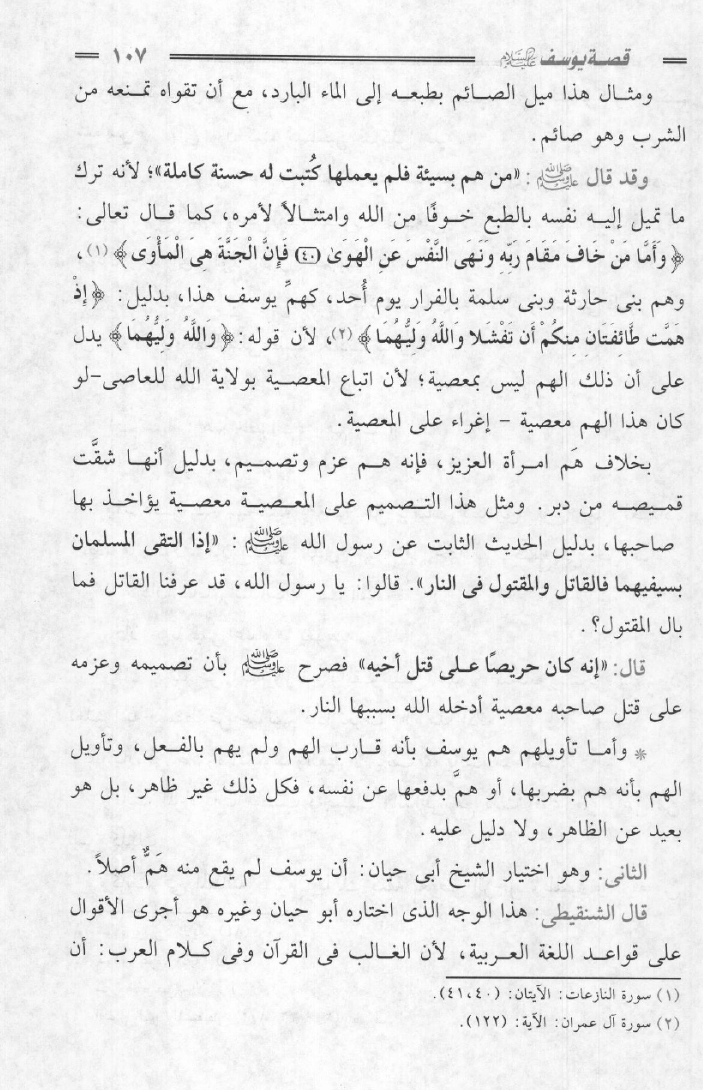 قصة يوسف عليه السلام ١٠٧
ومثال هذا ميل الصائم بطبعه إلى الماء البارد، مع أن تقواه تمنعه من
الشرب وهو صائم.
وقد قال ﷺ: «من هم بسيئة فلم يعملها كُتبت له حسنة كاملة»؛ لأنه ترك
ما تميل إليه نفسه بالطبع خوفًا من الله وامتثالاً لأمره، كما قال تعالى:
﴿وَأَمَّا مَنْ خَافَ مَقَامَ رَبِّهِ وَنَهَى النَّفْسَ عَنِ الْهَوَىٰ (٤٠) فَإِنَّ الْجَنَّةَ هِيَ الْمَأْوَى﴾ (١)،
وهم بنى حارثة وبنى سلمة بالفرار يوم أُحد، كهمِّ يوسف هذا، بدليل: ﴿إِذْ
هَمَّت طَّائِفَتَانِ مِنكُمْ أَن تَفْشَلا وَاللَّهُ وَلِيُّهُمَا﴾ (٢)، لأن قوله: ﴿وَاللَّهُ وَلِيُّهُمَا﴾ يدل
على أن ذلك الهم ليس بمعصية؛ لأن اتباع المعصية بولاية الله للعاصى-لو
كان هذا الهم معصية - إغراء على المعصية.
بخلاف هَم امرأة العزيز، فإنه هم عزم وتصميم، بدليل أنها شقَّت
قميصه من دبر. ومثل هذا التصميم على المعصية معصية يؤاخذ بها
صاحبها، بدليل الحديث الثابت عن رسول الله ﷺ: «إذا التقى المسلمان
بسيفيهما فالقاتل والمقتول فى النار». قالوا: يا رسول الله، قد عرفنا القاتل فما
بال المقتول؟.
قال: «إنه كان حريصًا على قتل أخيه» فصرح ﷺ بأن تصميمه وعزمه
على قتل صاحبه معصية أدخله الله بسببها النار.
* وأما تأويلهم هم يوسف بأنه قارب الهم ولم يهم بالفعل، وتأويل
الهم بأنه هم بضربها، أو همَّ بدفعها عن نفسه، فكل ذلك غير ظاهر، بل هو
بعيد عن الظاهر، ولا دليل عليه.
الثانى: وهو اختيار الشيخ أبى حيان: أن يوسف لم يقع منه هَمٌّ أصلاً.
قال الشنقيطى: هذا الوجه الذى اختاره أبو حيان وغيره هو أجرى الأقوال
على قواعد اللغة العربية، لأن الغالب فى القرآن وفى كلام العرب: أن
(١) سورة النازعات: الآيتان: (٤١،٤٠).
(٢) سورة آل عمران: الآية: (١٢٢).